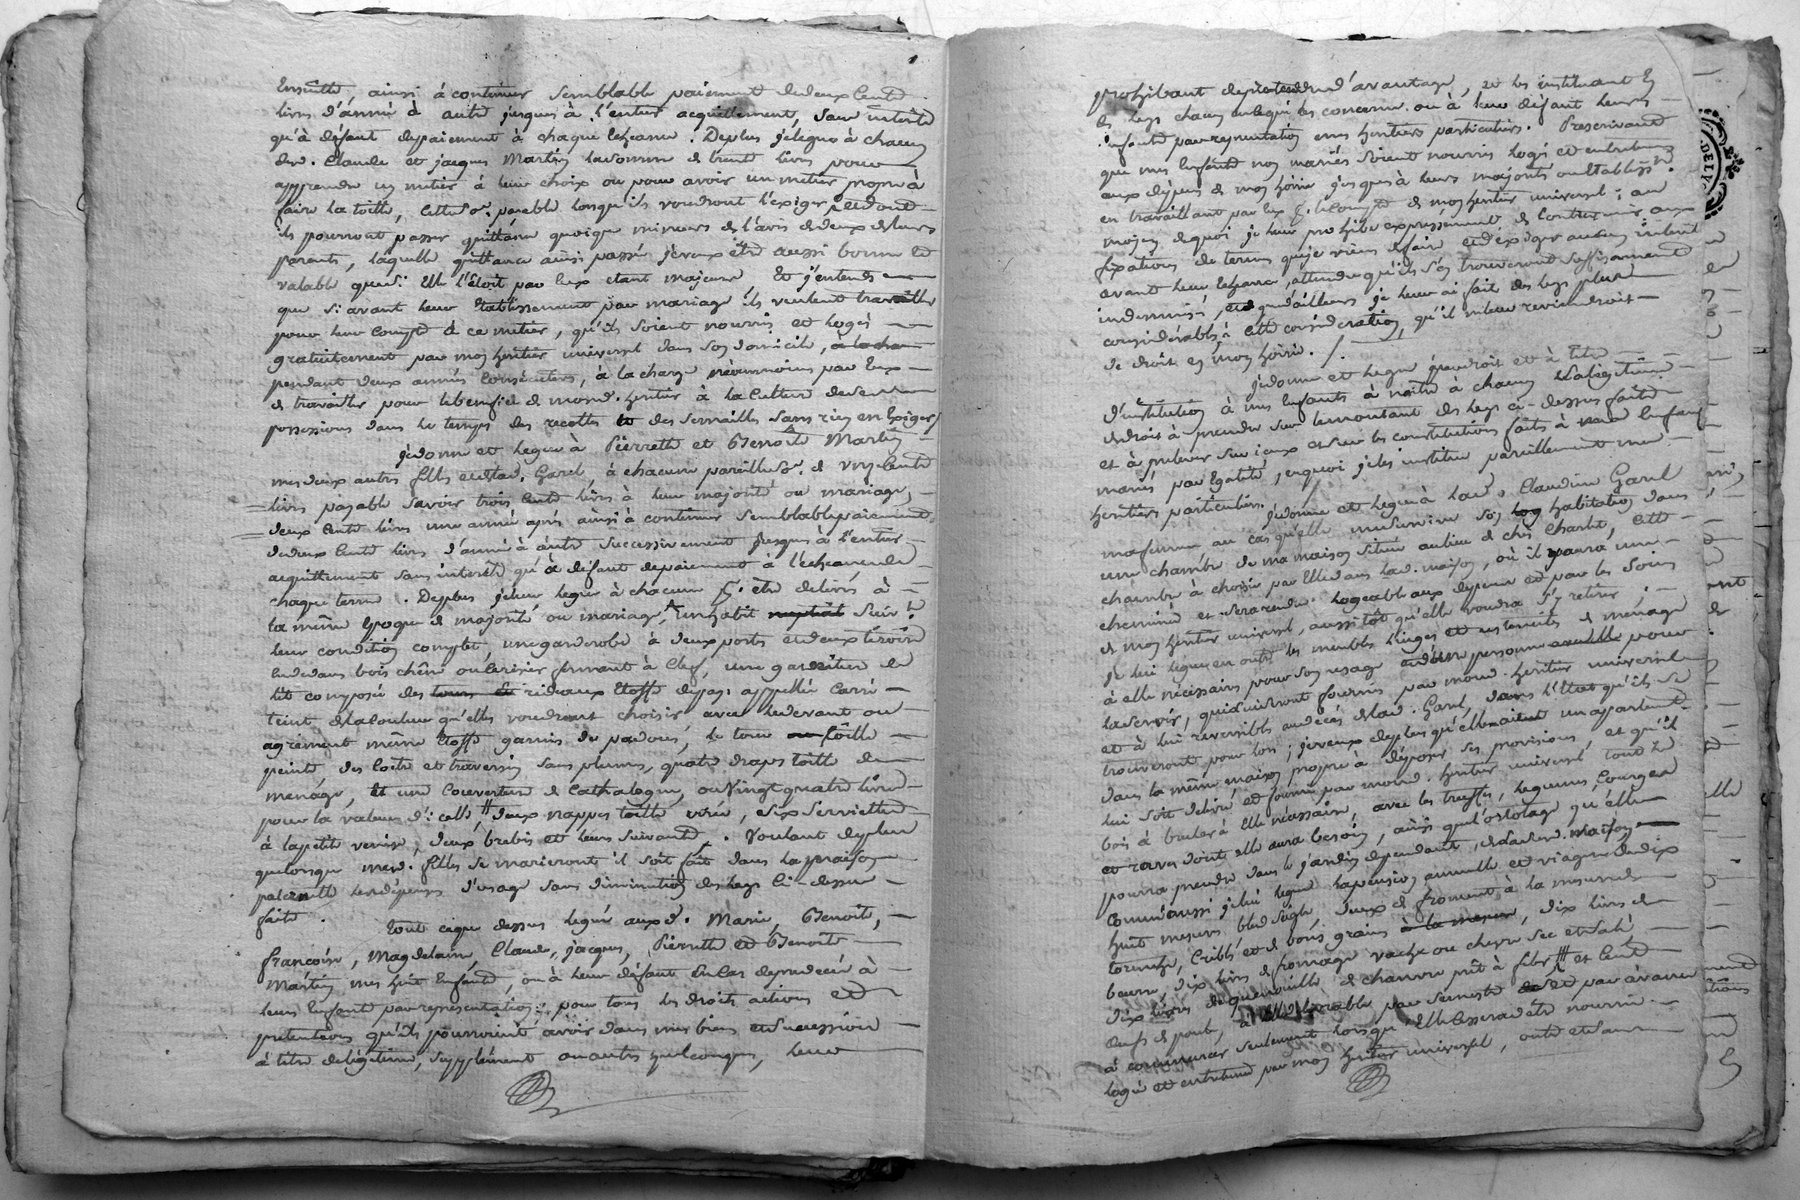 ensuitte ainsi à continuer semblable paiement de deux cents
livres d'année à autre jusques à l'entier acquittement, sans intérêts
qu'à défaut de paiement à chaque echeance. De plus je legue à chacun
des d. Claude et jacques Martin la somme de trente livres pour
apprendre un metier à leur choix ou pour avoir un metier propre à
faire la toille, cette so.e payable lorsqu'ils voudront l'exiger et dont
ils pourront passer quittance quoique mineurs de l'avis de deux de leurs
parents, laquelle quittance ainsi passée je veux être aussi bonne et
valable que si elle l'étoit par eux etant majeurs et j'entends
que si avant leur etablissement par mariage ils veulent travailler
pour leur compte à ce metier, qu'ils soient nourris et logés
gratuitement par mon heritier universel dans son domicile, à la cha
pendant deux années consécutives, à la charge néanmoins par eux
de travailler pour le benefice de mond. heritier à la culture de ses
possessions dans le temps des recoltes et des semailles sans rien en exiger
je donne et legue à Pierrette et Benoite Martin
mes deux autres filles et de lad. Garel, à chacune pareille so.e de cents
livres payable savoir trois cents livres à leur majorité ou mariage,
deux cents livres une année après ainsi à continuer semblable paiement
de deux cents livres d'année à autre successivement jusques à l'entier
acquittement sans intérêts qu'à défaut de paiement à l'echeance de
chaque terme. De plus je leur legue à chacune p. être delivrés à
la même epoque de majorité ou mariage, un habit nuptial suiv.t
leur condition complet, une garderobe à deux portes et deux tiroirs
en dedans bois chêne ou cerisier fermant à clef, une garniture de
lit composée des tours de rideaux etoffe de pays appellée Carri
teint de la couleur qu'elles voudront choisir avec le devant ou
agrément même etoffe garnis de padoue, le tour en toille
peinte, des coitre et traversin sans plumes, quatre draps toille de
menage, et une couverture de Cathalogne, ou vingt quatre livres
pour la valeur d'icelle, deux nappes toille, six serviettes
à la petite venise, deux brebis et leurs suivants. Voulant de plus
que lorsque mesd. filles se marieront il soit fait dans la maison
paternelle les dépenses d'usage sans diminution des legs ci-dessus
faits.
Tout ce que dessus legué auxd. Marie, Benoit,
françoise, Magdelaine, Claude, jacques, Pierrette et Benoite
Martin mes huit enfants, ou à leur défaut en cas de prédécès à
leurs enfants par representation, pour tous les droits actions et
pretentions qu'ils pourroient avoir dans mes biens et succession
à titre de légitime, supplément ou autres quelconques, leur
prohibant de prétendre d'avantage, et les instituant en
les legs chacun en ce qui les concerne ou à leur défaut leurs
enfants par representation mes heritiers particuliers. Prescrivant
que mes enfants non mariés soient nourris logés et entretenus
aux dépens de mon hoirie jusques à leurs majorités ou etabliss.t
en travaillant par eux p. le compte de mon heritier universel; au
moyen de quoi je leur prohibe expressement de contrevenir aux
fixations de termes que je viens de faire et d'exiger aucun intérêt
avant leur echeance, attendu qu'ils s'en trouveront suffisamment
indemnisés, et que d'ailleurs je leur ai fait des legs plus
considérables à cette considération, qu'il ne leur reviendroit
de droit en mon hoirie. /.
je donne et legue par droit et à titre
d'institution à mes enfants à naître à chacun la légitime
de droit à prendre sur le montant des legs ci-dessus faits
et à prelever sur iceux et sur les constitutions faites à mes enfans
mariés par egalité, en quoi je les institue pareillement mes
heritiers particuliers.
je donne et legue à lad. Claudine Garel
ma femme, au cas qu'elle me survive son log habitation dans
une chambre de ma maison située au lieu de chés Charlet, cette
chambre à choisir par elle dans lad. maison, où il y aura une
cheminée et sera rendue logeable aux depens et par les soins
de mon heritier universel, aussitôt qu'elle voudra s'y retirer;
je lui legue en outre les meubles linges et ustensiles de menage
à elle nécessaires pour son usage et d'une personne pour
la servir, qui lui seront fournis par mond. heritier universel
et à lui reversibles au decès de lad. Garel, dans l'etat qu'ils se
trouveront pour lors; je veux de plus qu'elle ait un appartement
dans la même maison propre à déposer ses provisions, et qu'il
lui soit delivré et fourni par mond. heritier universel tout le
bois à bruler à elle nécessaire, avec les truffes, legumes, courges
et raves dont elle aura besoin, ainsi que l'ortolage qu'elle
pourra prendre dans le jardin dependant de lad. maison
comm'aussi je lui legue la pension annuelle et viagere de dix
huit mesures bled seigle, deux de froment à la mesure de
, criblé et de bons grains à la mesure, dix livres de
beurre, dix livres de fromage vache ou chevre sec et salé,
dix livres de quenouille de chanvre prêt à filer et cent
œufs de poule, à elle payable par semestre et par avance
à commencer seulement lorsqu'elle cessera d'être nourrie
logée et entretenue par mon heritier universel, outre et sans